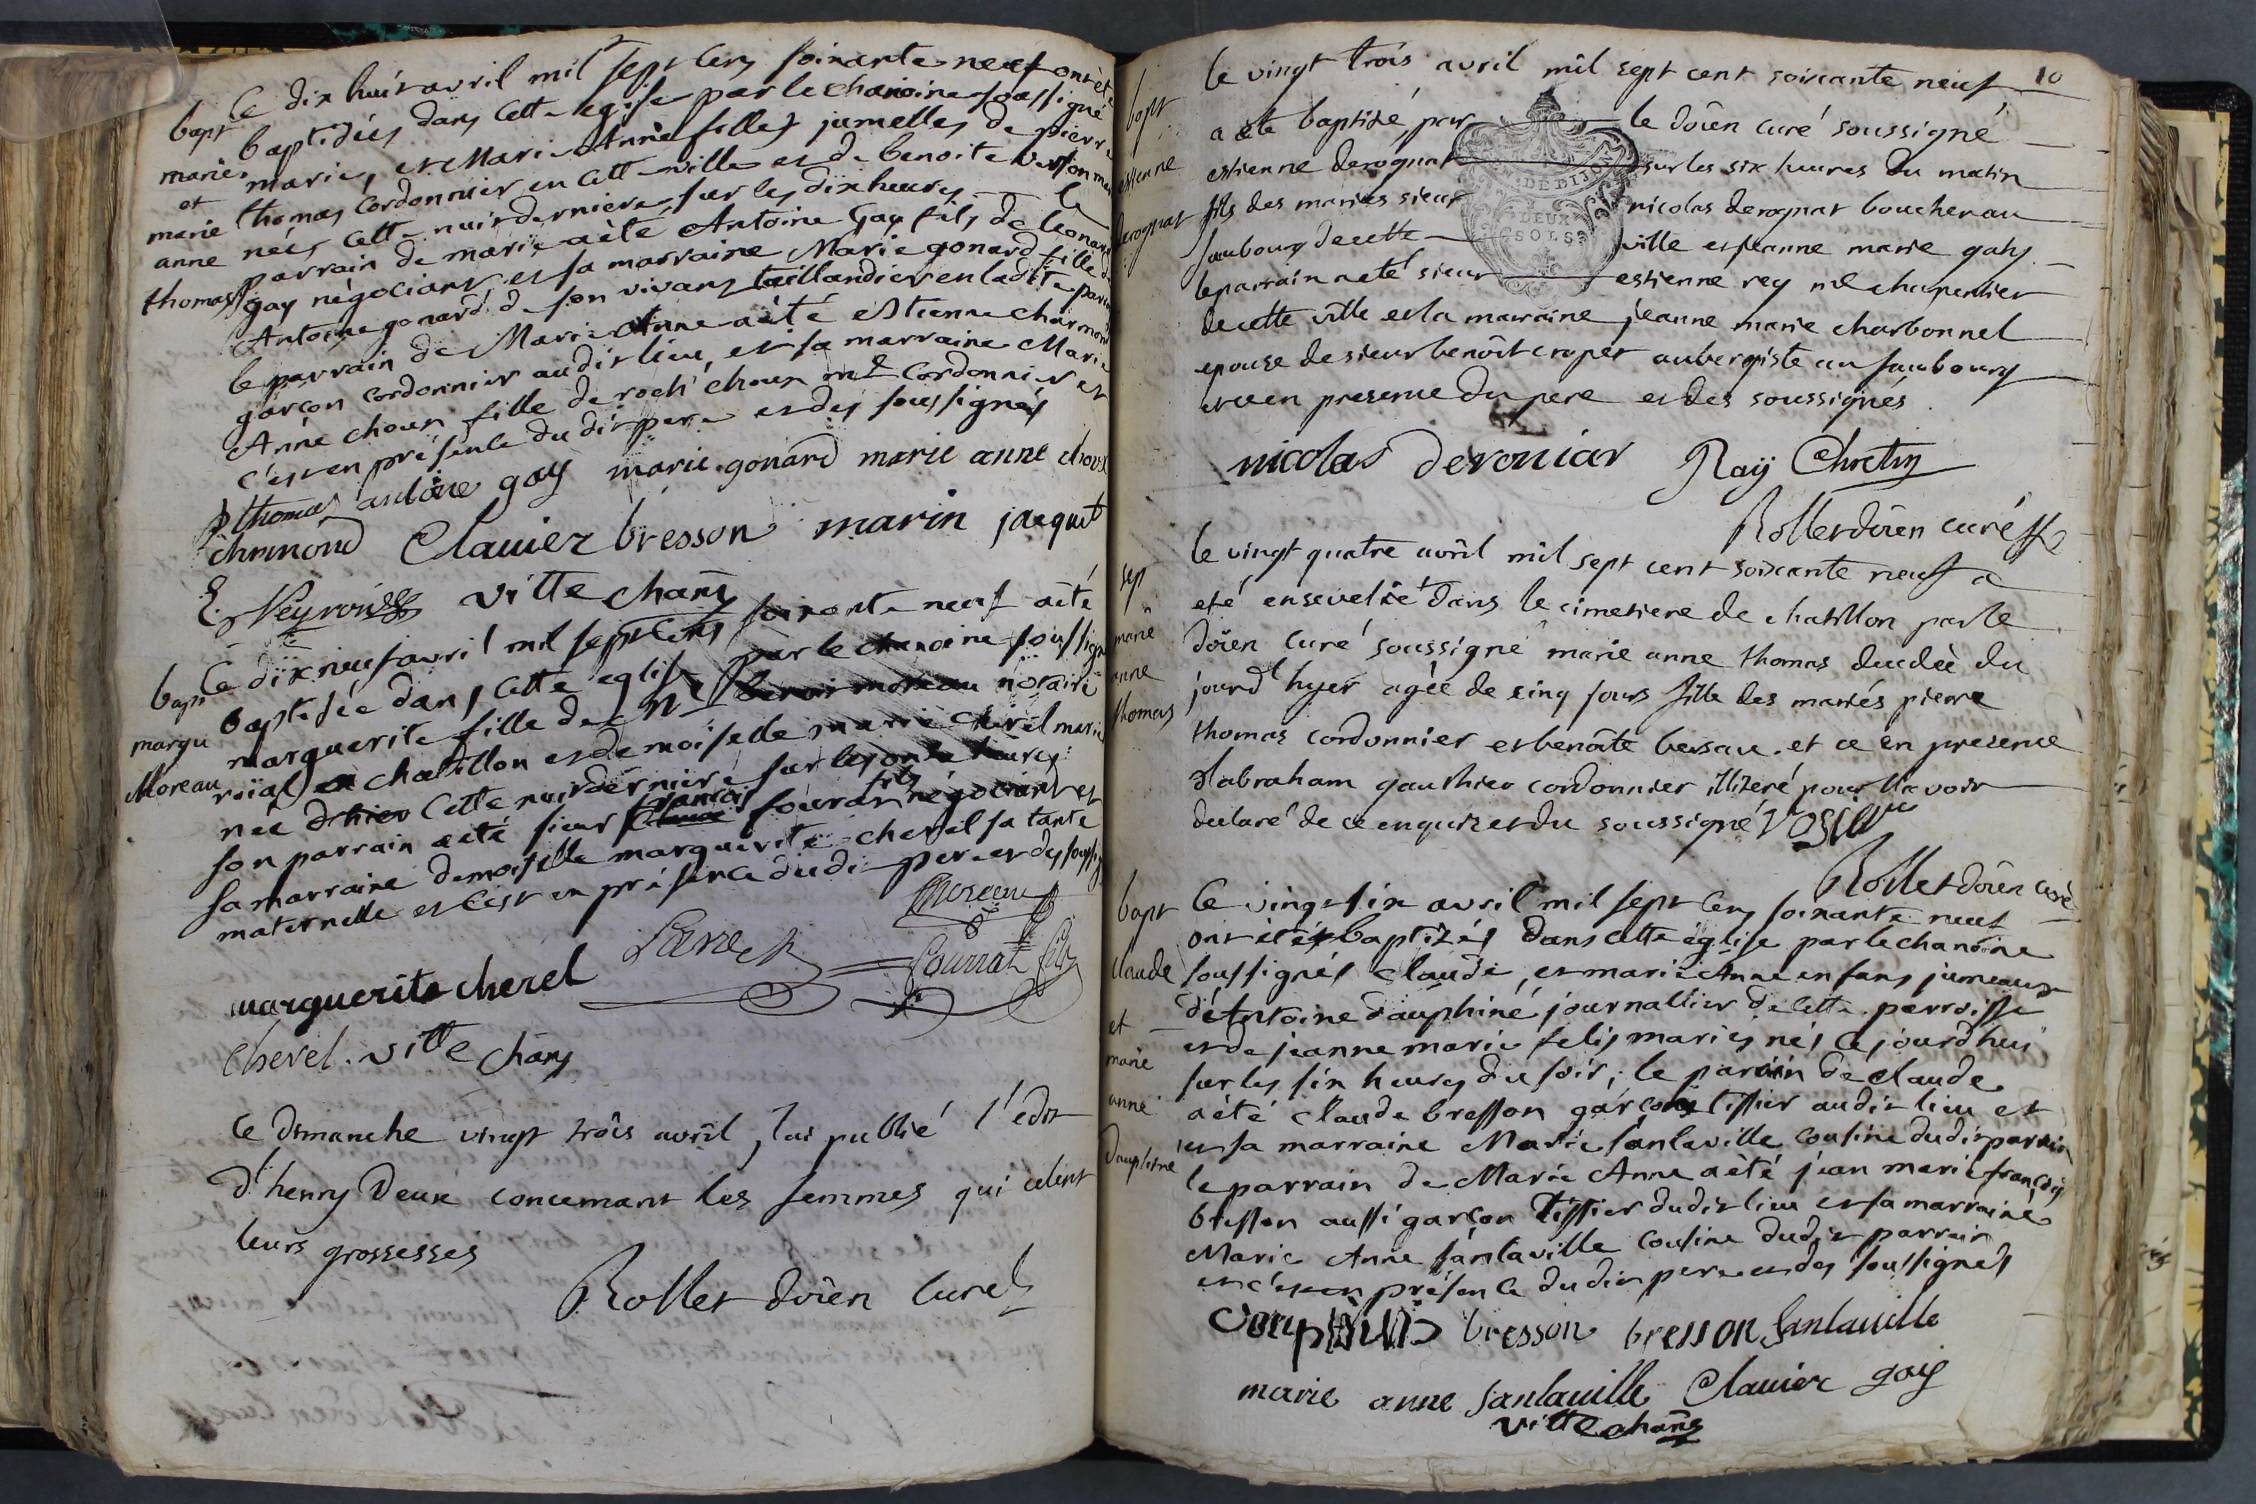 Ce dix huit avril mil sept cens soixante neuf ont été
bapt
baptisées dans cette eglise par le chanoine soussigné
maries
marie, et Marie Anne filles jumelles de pierre
et
thomas cordonnier en cette ville et de benoite
marie
nées cette nuit derniere sur les dix heures le
anne
parrain de marie a été Antoine Gay fils de Leonard
thomas
gay négociant et sa marraine Marie gonard fille de
Antoine gonard de son vivant taillandier en ladite
le parrain de Marie Anne a été estienne charmond
garçon cordonnier audit lieu, et sa marraine Marie
Anne choux fille de roch choux md cordonnier et
c'est en présence dudit pere et des soussignés
p thomas antoine gay marie gonard marie anne choux
charmond Clauier bresson marin jacquet
Vitte chañe
bapt
Ce dix neuf avril mil sept cens soixante neuf a été
baptisée dans cette eglise par le chanoine soussigné
margu
marguerite fille de Me benoit moreau notaire
Moreau
roïal en chatillon et demoiselle marie cherel mariés
née cette nuit derniere sur les onze heures
son parrain a été sieur françois fourat fils négociant et
sa marraine demoiselle marguerite cherel sa tante
maternelle et c'est en présence dudit pere et des soussignés
Moreau
marguerite cherel
Cherel. vitte chañe
Ce dimanche vingt trois avril, j'ai publié l'edit
d'henry Deux concernant les femmes qui celent
leurs grossesses
Rollet doïen curé
10
le vingt trois avril mil sept cent soixante neuf
bapt
a été baptisé par le doïen curé soussigné
estienne
estienne derognat sur les six heures du matin
derognat
fils des mariés sieur nicolas derognat boucher au
faubourg de cette ville et jeanne marie gahy
le parrain a eté sieur estienne rey md charpentier
de cette ville et la marraine jeanne marie charbonnel
epouse de sieur benoit croper aubergiste au faubourg
et ce en presence du pere et des soussignés
DE DIJON
DEUX
SOLS
nicolas deroniar Raÿ Chretin
Rollet doïen curé
sep
le vingt quatre avril mil sept cent soixante neuf a
eté ensevelie dans le cimetiere de chatillon par le
marie
doïen curé soussigné marie anne thomas decedée du
anne
jourd'hyer agée de cinq jours fille des mariés pierre
thomas
thomas cordonnier et benoite et ce en presence
d'abraham gauthier cordonnier illiteré pour l'avoir
declaré de ce enquis et du soussigné
Rollet doïen curé
bapt
Ce vingt six avril mil sept cens soixante neuf
ont étés baptizés dans cette église par le chanoine
claude
soussignés claude, et marie Anne enfans jumeaux
d'Antoine dauphiné journallier de cette parroisse
et
et de jeanne marie felis mariés nés ce jourd'hui
marie
sur les six heures du soir; le parrain de claude
anne
a été claude bresson garçon tissier audit lieu et
dauphiné
et sa marraine Marie sanlaville cousine dudit parrain
le parrain de Marie Anne a été jean marie françois
bresson aussi garçon tissier dudit lieu et sa marraine
Marie Anne sanlaville cousine dudit parrain
et c'est en présence dudit pere et des soussignés
bresson bresson sanlauille
marie anne sanlauille Clauier gay
vitte chañe